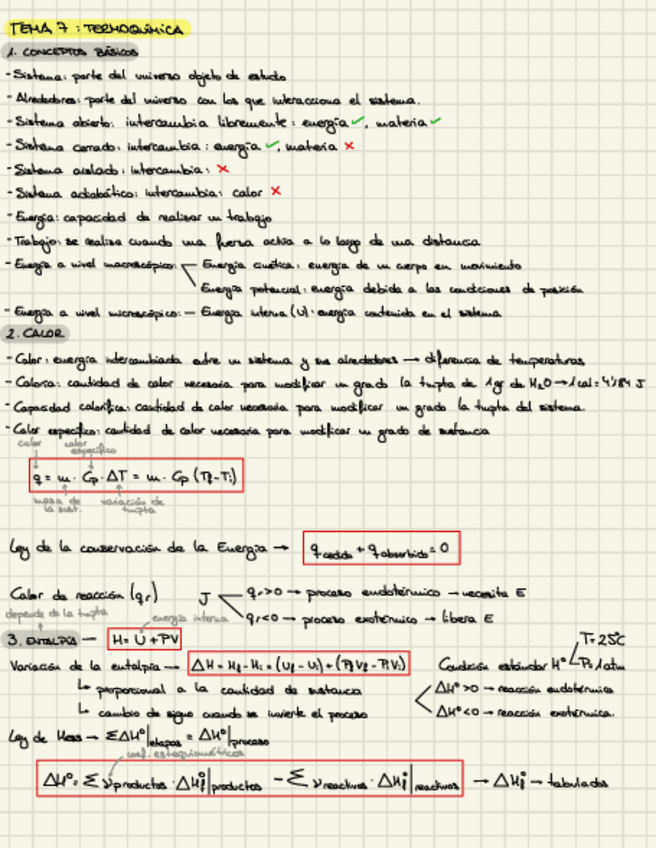 TEMA 7 : TERMOQUÍMICA
1. CONCEPTOS BÁSICOS
- Sistema: parte del universo objeto de estudio
- Alrededores: parte del universo con los que interacciona el sistema.
- Sistema abierto: intercambia libremente: energía ✓, materia ✓
- Sistema cerrado: intercambia: energía ✓, materia ✗
- Sistema aislado: intercambia: ✗
- Sistema adiabático: intercambia: calor ✗
- Energía: capacidad de realizar un trabajo
- Trabajo: se realiza cuando una fuerza actúa a lo largo de una distancia
- Energía a nivel macroscópico: Energía cinética: energía de un cuerpo en movimiento
Energía potencial: energía debida a las condiciones de posición
- Energía a nivel microscópico: — Energía interna (U): energía contenida en el sistema
2. CALOR
- Calor: energía intercambiada entre un sistema y sus alrededores → diferencia de temperaturas
- Caloría: cantidad de calor necesaria para modificar un grado la tupta de 1gr de H₂O → 1 cal = 4'184 J
- Capacidad calorífica: cantidad de calor necesaria para modificar un grado la tupta del sistema
- Calor específico: cantidad de calor necesaria para modificar un grado de sustancia
calor calor específico
q = m · Cp · ΔT = m · Cp (Tf - Ti)
masa de la sust. variación de tupta
Ley de la conservación de la Energía → q cedido + q absorbido = 0
Calor de reacción (qr) J qr>0 → proceso endotérmico → necesita E
qr<0 → proceso exotérmico → libera E
depende de la tupta energía interna
3. ENTALPÍA — H = U + PV T = 25°C
Variación de la entalpía — ΔH = Hf - Hi = (Uf - Ui) + (PfVf - PiVi) Condición estándar H° P = 1 atm
↳ proporcional a la cantidad de sustancia ΔH°>0 → reacción endotérmica
↳ cambio de signo cuando se invierte el proceso ΔH°<0 → reacción exotérmica.
Ley de Hess → ΣΔH°|etapas = ΔH°|proceso
coef. estequiométricos
ΔH° = Σ ν productos · ΔHf°|productos - Σ ν reactivos · ΔHf°|reactivos → ΔHf° → tabulados